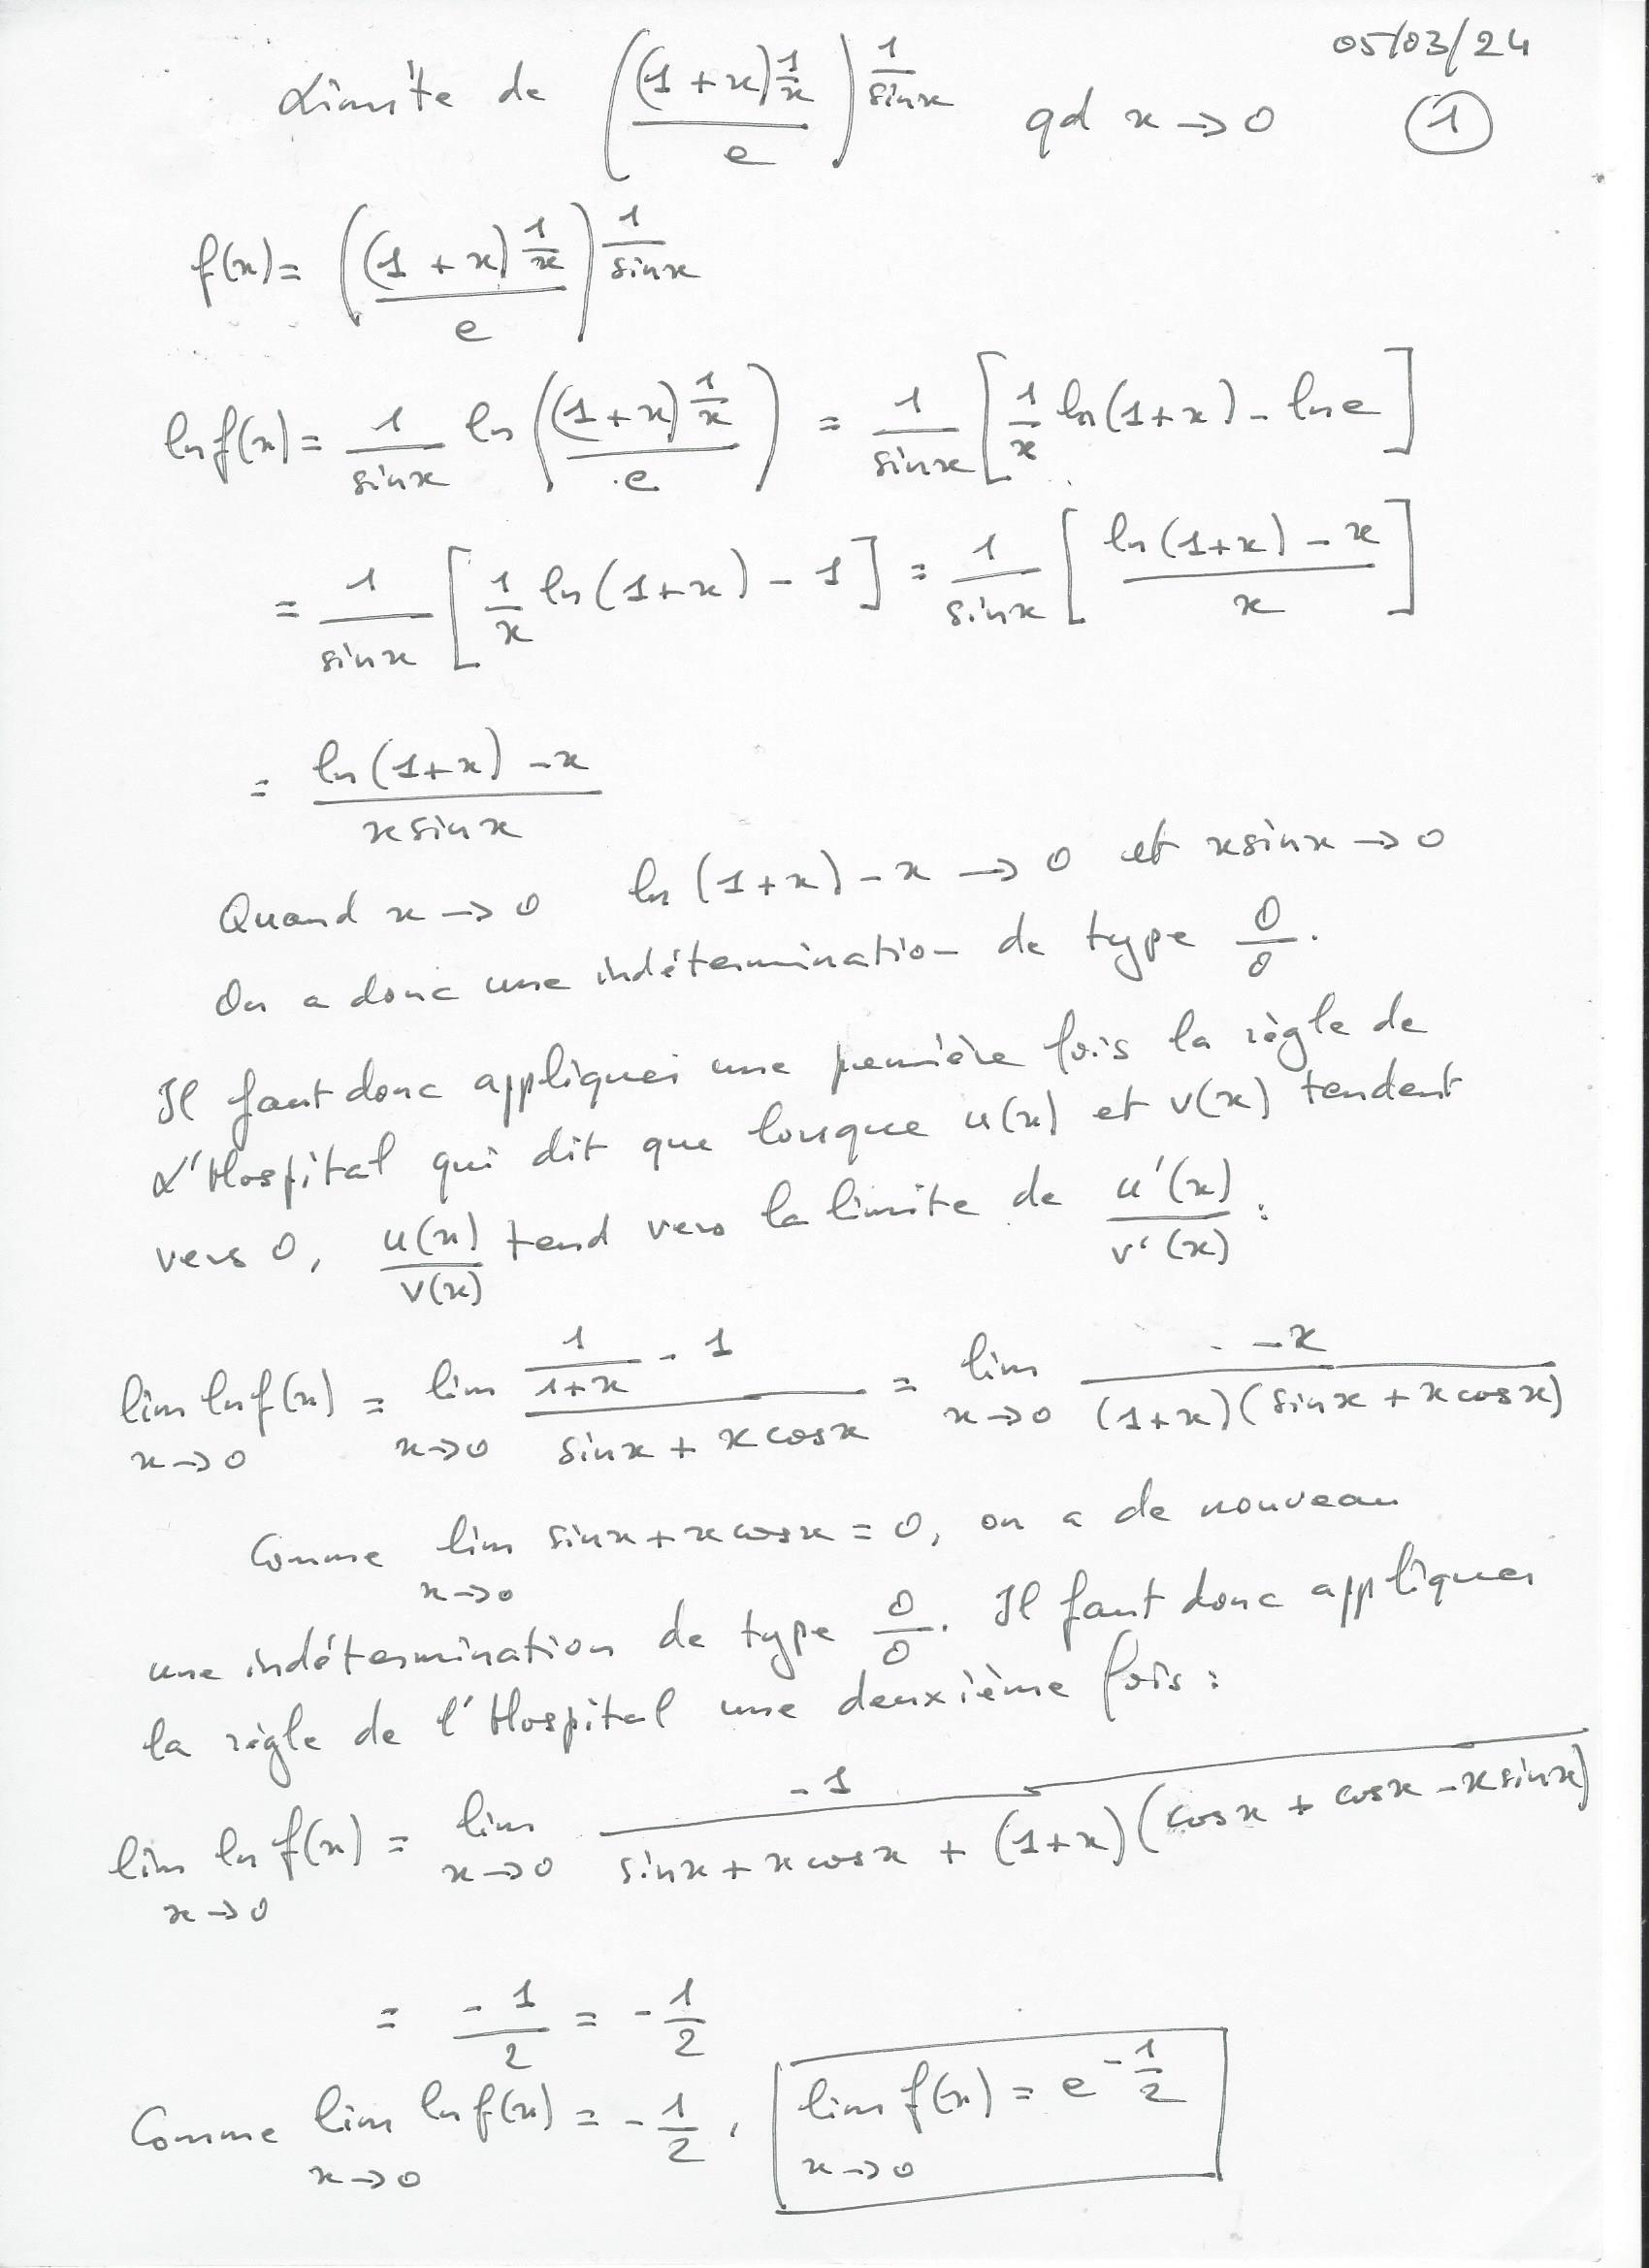 05/03/24
Limite de ((1+x)^(1/x) / e)^(1/sinx) qd x → 0 (1)
f(x) = ((1+x)^(1/x) / e)^(1/sinx)
ln f(x) = 1/sinx ln((1+x)^(1/x) / e) = 1/sinx [1/x ln(1+x) - ln e]
= 1/sinx [1/x ln(1+x) - 1] = 1/sinx [(ln(1+x) - x) / x]
= (ln(1+x) - x) / (x sinx)
Quand x → 0 ln(1+x) - x → 0 et x sinx → 0
On a donc une indétermination de type 0/0.
Il faut donc appliquer une première fois la règle de
L'Hospital qui dit que lorsque u(x) et v(x) tendent
vers 0, u(x)/v(x) tend vers la limite de u'(x)/v'(x) :
lim x→0 ln f(x) = lim x→0 (1/(1+x) - 1) / (sinx + x cosx) = lim x→0 -x / ((1+x)(sinx + x cosx))
Comme lim x→0 sinx + x cosx = 0, on a de nouveau
une indétermination de type 0/0. Il faut donc appliquer
la règle de l'Hospital une deuxième fois :
lim x→0 ln f(x) = lim x→0 -1 / (sinx + x cosx + (1+x)(cosx + cosx - x sinx))
= -1/2 = -1/2
Comme lim x→0 ln f(x) = -1/2, lim x→0 f(x) = e^(-1/2)